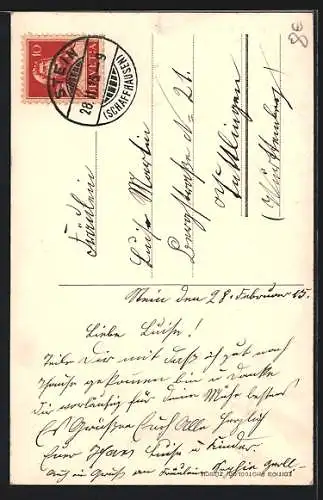 10
HELVETIA
STEIN
28.II.15. 9
(SCHAFFHAUSEN)
Fräulein
Luise Martin
Bergstraße No 21.
Tuttlingen
(Württemberg)
Stein den 28. Februar 15.
Liebe Luise!
Teile Dir mit daß ich gut nach
Hause gekommen bin u danke
Dir vorläufig für Deine Mühe bestens
Es Grüßen Euch Alle herzlich
Euer Hans Luise u Kinder.
auch ein Gruß an Fräulein Sophie